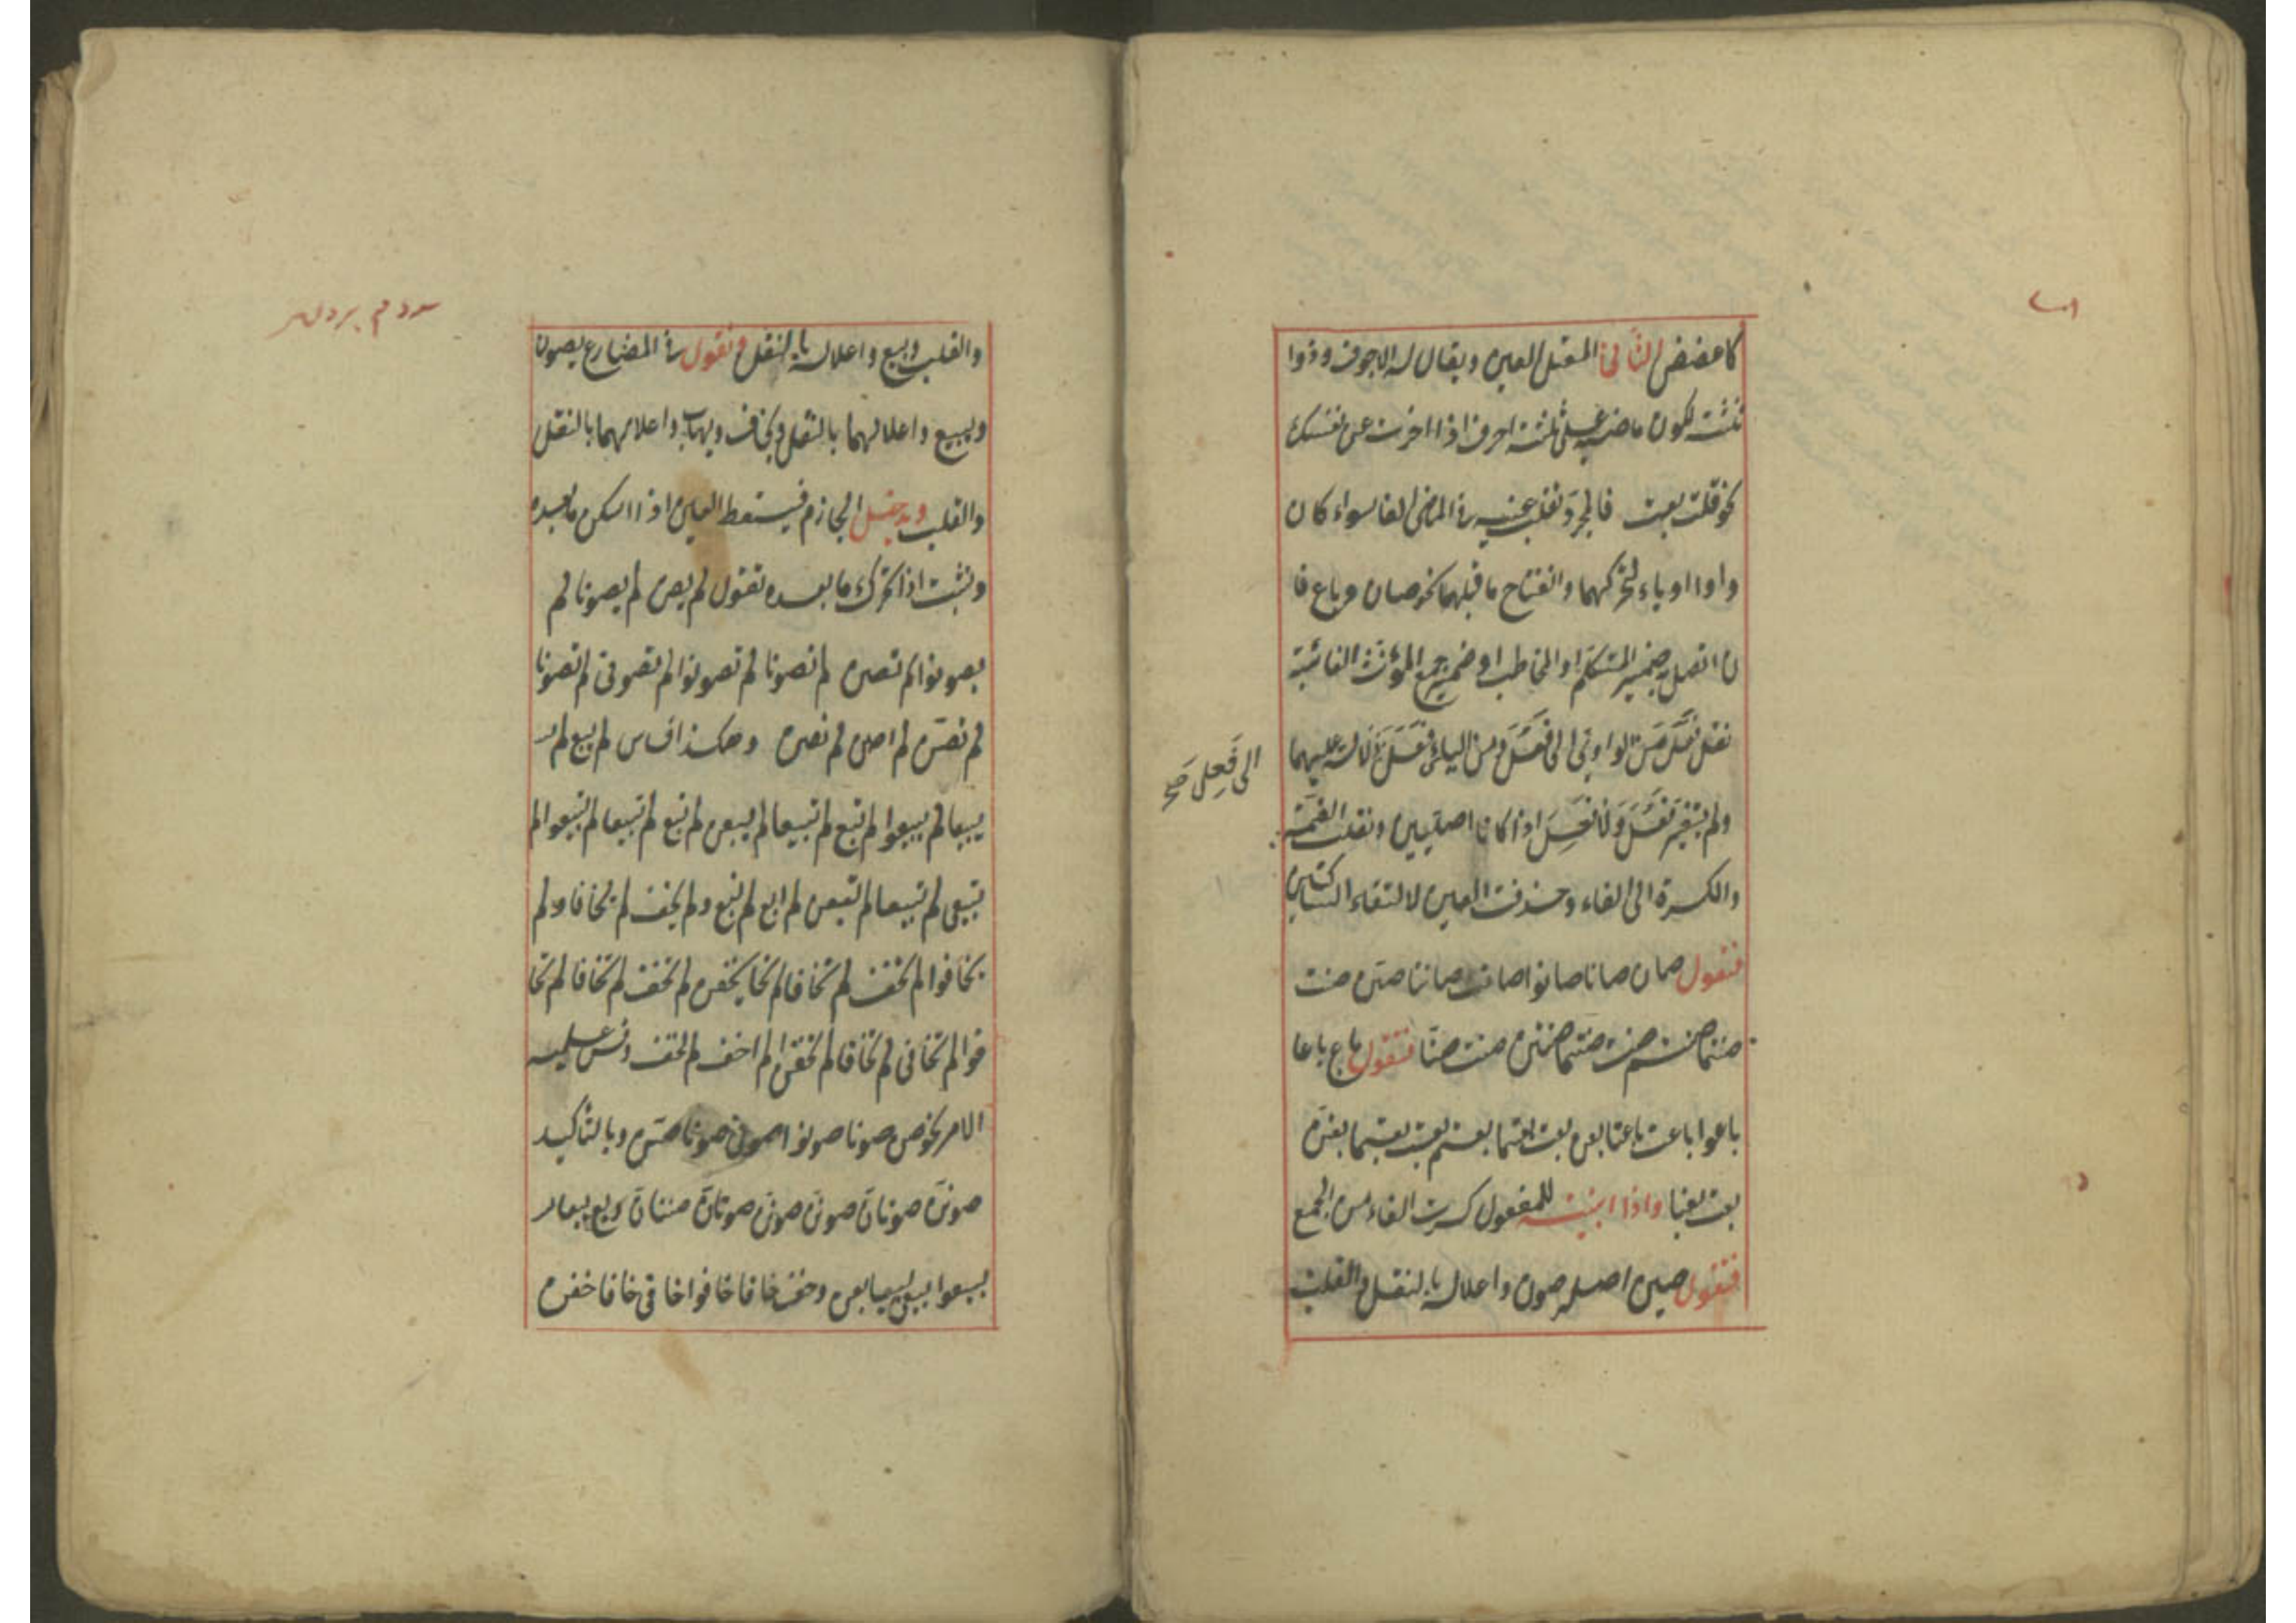 كاعضض الثاني المعتل العين ويقال له الاجوف وذوا
ثلثة لكون ماضيه على ثلثة احرف اذا اخبرت عن نفسك
نحو قلت بعت فالمجرد تقلب عينه في الماضي الفا سواء كان
واوا او ياء لتحركهما وانفتاح ما قبلهما نحو صان وباع فا
ن اتصل ضمير المتكلم او المخاطب او ضمير جمع المؤنث الغائبة
نقل فَعَلَ من الواوي الى فَعُلَ ومن اليائي دلالة عليهما
الى فَعِلَ صح
ولم يتغير فَعُلَ ولا فَعِلَ اذا كانا اصليين ونقلت الضمة
والكسرة الى الفاء وحذفت العين لالتقاء الساكنين
فتقول صان صانا صانوا صانت صانتا صنّ صنت
صنتما صنتم صنت صنتما صنتن صنت صنّا فتقول باع باعا
باعوا باعت باعتا بعن بعت بعتما بعتم بعت بعتما بعتن
بعت بعنا واذا ابنيته للمفعول كسرت الفاء من الجمع
فتقول صين اصله صون واعلاله بالنقل والقلب
والقلب وبيع واعلاله بالنقل وتقول في المضارع يصون
ويبيع واعلالهما بالنقل ويخاف ويهاب واعلالهما بالنقل
والقلب ويدخل الجازم فيسقط العين اذا اسكن ما بعده
وتثبت اذا تحرك ما بعده تقول لم يصن لم يصونا لم
يصونوا لم تصن لم تصونا لم تصونوا لم تصوني لم تصونا
لم تصنّ لم اصن لم نصن وهكذا قياس لم يبع لم
يبيعا لم يبيعوا لم تبع لم تبيعا لم يبعن لم تبع لم تبيعا لم تبيعوا لم
تبيعي لم تبيعا لم تبعن لم ابع لم نبع ولم يخف لم يخافا ولم
يخافوا لم تخف لم تخافا لم يخفن لم تخف لم تخافا لم تخا
فوا لم تخافي لم تخافا لم تخفن لم اخف لم نخف وقس عليه
الامر نحو صن صونا صونوا صوني صونا صنّ وبالتاكيد
صوننّ صونانّ صوننّ صوننّ صونانّ صننانّ وبع بيعا
بيعوا بيعي بيعا بعن وخف خافا خافوا خافي خافا خفن